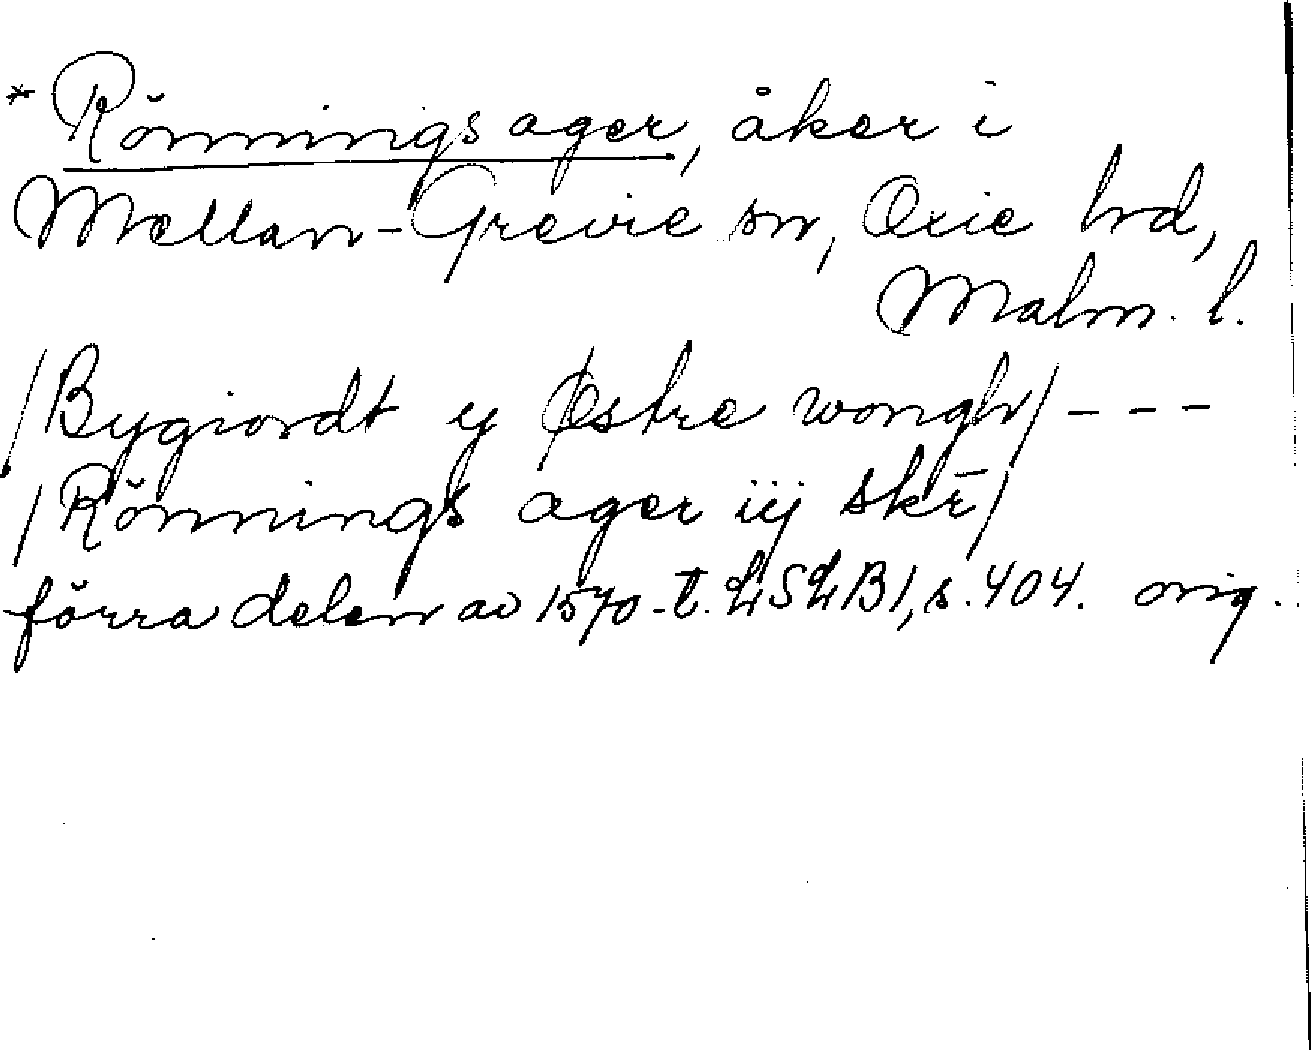 * Rönnings ager, åker i
Mellan-Grevie sn, Oxie hd,
Malm. l.
/Bygiordt y Østre wongh/ - - -
/Rönnings ager iij skr̄/
förra delen av 1570-t. LSLB1, s. 404. orig.